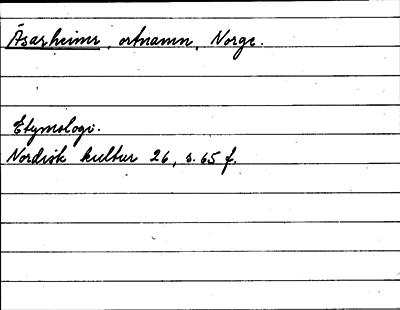 Ásarheimr, ortnamn, Norge.
Etymologi.
Nordisk kultur 26, s. 65 f.